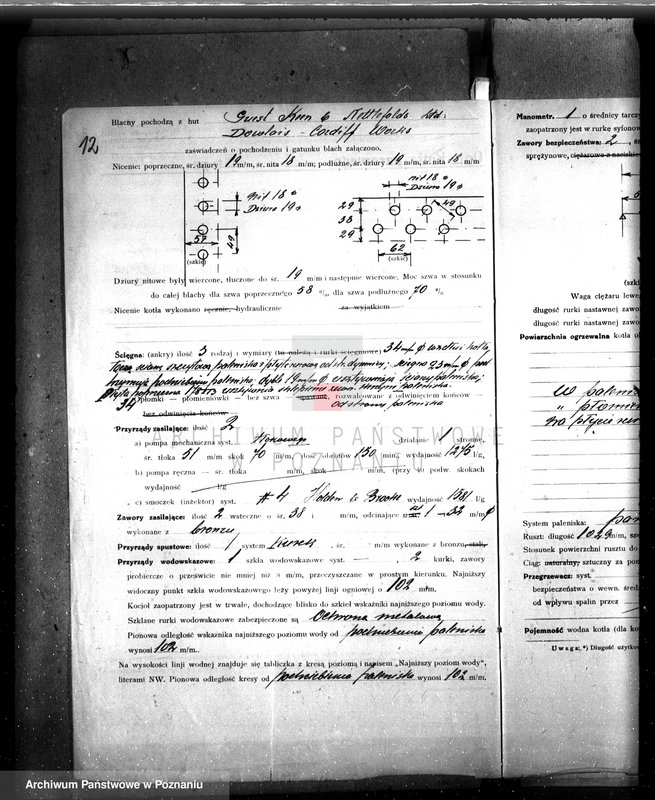 12
Blachy pochodzą z hut Guest Keen & Nettlefolds Ltd:
Dowlais - Cardiff Works
zaświadczeń o pochodzeniu i gatunku blach załączono.
Nicenie: poprzeczne, sr. dziury 19 m/m, sr. nita 18 m/m; podłużne, sr. dziury 19 m/m, sr. nita 18 m/m
Nit 18
Dziura 19
57
49
(szkic)
nit 18
Dziura 19
29
38
29
49
62
(szkic)
Dziury nitowe były wiercone, tłuczone do śr. 19 m/m i następnie wiercone. Moc szwa w stosunku
do całej blachy dla szwa poprzecznego 58 %, dla szwa podłużnego 70 %
Nicenie kotła wykonano ręcznie, hydraulicznie za wyjątkiem
Ścięgna: (ankry) ilość 3 rodzaj i wymiary (tu należą i rurki ściągniowe) 34 m/m ϕ wzdłuż kotła
płomki — płomieniówki — bez szwa rozwalcowane z odwinięciem końców
34
bez odwinięcia końców od strony paleniska
Przyrządy zasilające: ilość 2
a) pompa mechaniczna syst. działanie 1 stronne,
śr. tłoka 51 m/m skok 70 m/m, ilość obrotów 150 (min., wydajność 1275 l/g
b) pompa ręczna — śr. tłoka m/m, skok m/m, (przy 10) podw. skokach
wydajność l/g
c) smoczek (inżektor) syst. # 4 Holden & Brooke wydajność 1581 l/g
Zawory zasilające: ilość 2 wsteczne o śr. 38 i m/m, odcinające o 1 - 32 m/m ϕ
wykonane z bronzu
Przyrządy spustowe: ilość 1 system kurek śr. m/m wykonane z bronzu, stali,
Przyrządy wodowskazowe: 1 szkła wodowskazowe syst. — 2 kurki, zawory
probiercze o prześwicie nie mniej niż 8 m/m, przeczyszczane w prostym kierunku. Najniższy
widoczny punkt szkła wodowskazowego leży powyżej linji ogniowej o 102 m/m.
Kocioł zaopatrzony jest w trwałe, dochodzące blisko do szkieł wskaźniki najniższego poziomu wody.
Szklane rurki wodowskazowe zabezpieczone są Ochroną metalową
Pionowa odległość wskaźnika najniższego poziomu wody od podniebienia paleniska
wynosi 102 m/m.
Na wysokości linji wodnej znajduje się tabliczka z kresą poziomą i napisem „Najniższy poziom wody",
literami NW. Pionowa odległość kresy od podniebienia paleniska wynosi 102 m/m.
Manometr. 1 o średnicy tarczy
zaopatrzony jest w rurkę syfonow
Zawory bezpieczeństwa: 2
sprężynowe, ciężarowe z naciskiem
(szki
Waga ciężaru lewe
długość rurki nastawnej zawo
długość rurki nastawnej zawo
Powierzchnia ogrzewalna kotła
W palenis
" płomie
na płycie
System paleniska: pan
Ruszt: długość 1029 m/m, sze
Stosunek powierzchni rusztu do
Ciąg: naturalny, sztuczny za po
Przegrzewacz: syst.
bezpieczeństwa o wewn. śred
od wpływu spalin przez
Pojemność wodna kotła (dla ko
Uwaga: *) Długość użytko
ARCHIWUM PAŃSTWOWE
W POZNANIU
Archiwum Państwowe w Poznaniu